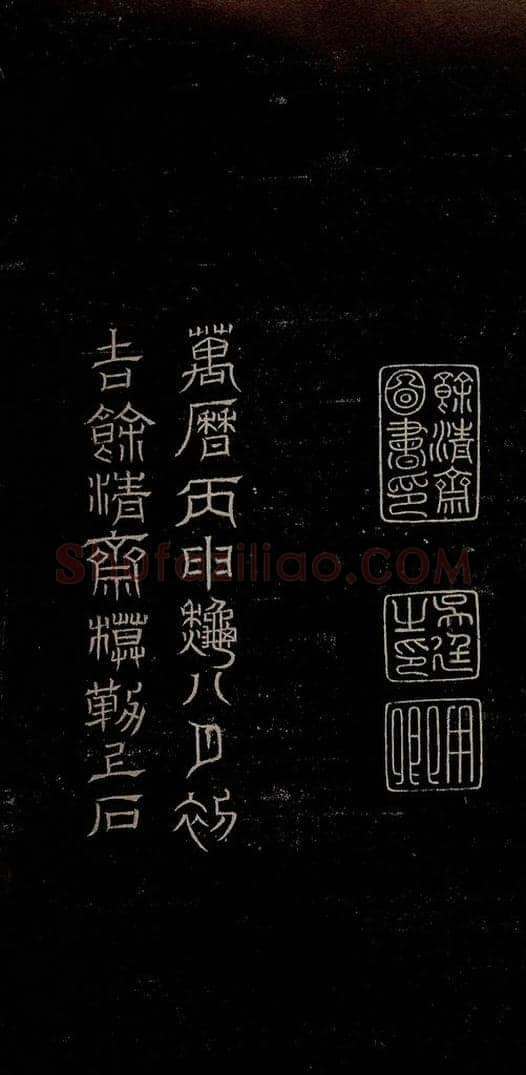 餘清齋
圖書印
吳廷
之印
用卿
萬曆丙申龝八月初
吉餘清齋模勒上石
Shufaziliao.COM